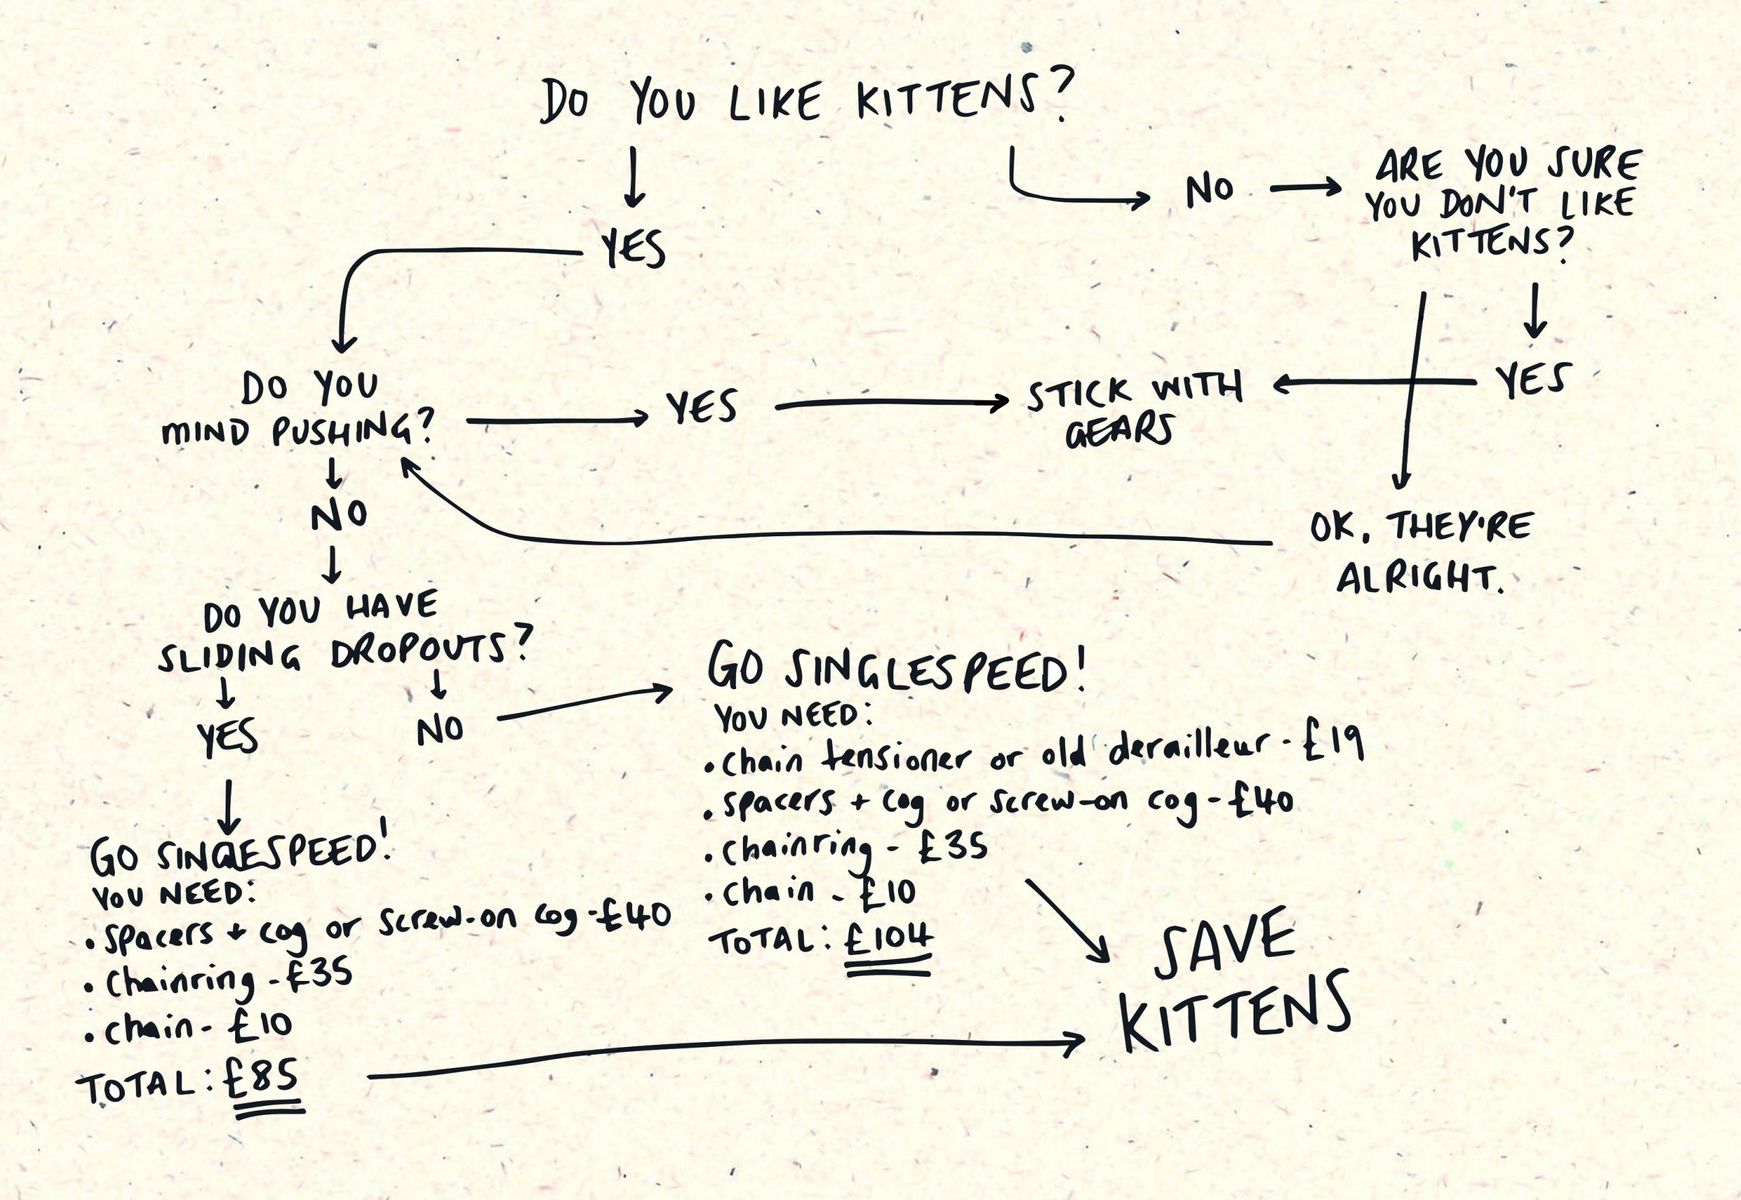 DO YOU LIKE KITTENS?
YES
NO
ARE YOU SURE
YOU DON'T LIKE
KITTENS?
DO YOU
MIND PUSHING?
YES
STICK WITH
GEARS
YES
NO
OK, THEY'RE
ALRIGHT.
DO YOU HAVE
SLIDING DROPOUTS?
YES
NO
GO SINGLESPEED!
YOU NEED:
• chain tensioner or old derailleur - £19
• spacers + cog or screw-on cog - £40
• chainring - £35
• chain - £10
TOTAL: £104
GO SINGLESPEED!
YOU NEED:
• spacers + cog or screw-on cog - £40
• chainring - £35
• chain - £10
TOTAL: £85
SAVE
KITTENS